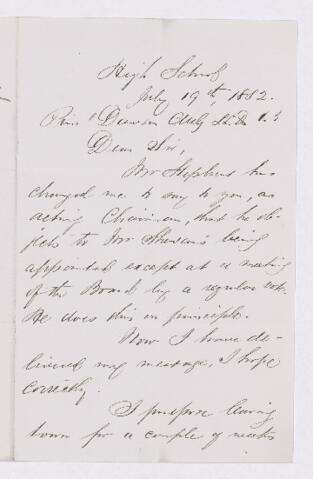 High School
July 19th, 1882.
Prin Dawson LL.D
Dear Sir,
Mr Stephens has
charged me to say to you, as
acting Chairman, that he ob-
jects to Mr being
appointed except at a meeting
of the Board by a regular vote.
He does this on principle.
Now I have de-
livered my message, I hope
correctly.
I purpose leaving
town for a couple of weeks